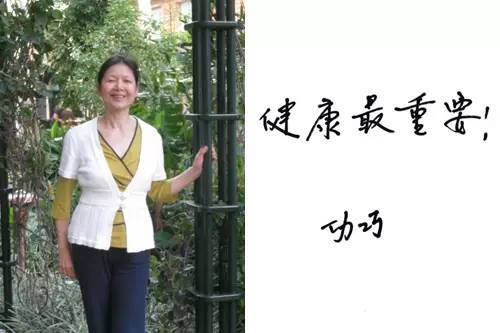 健康最重要!
功巧